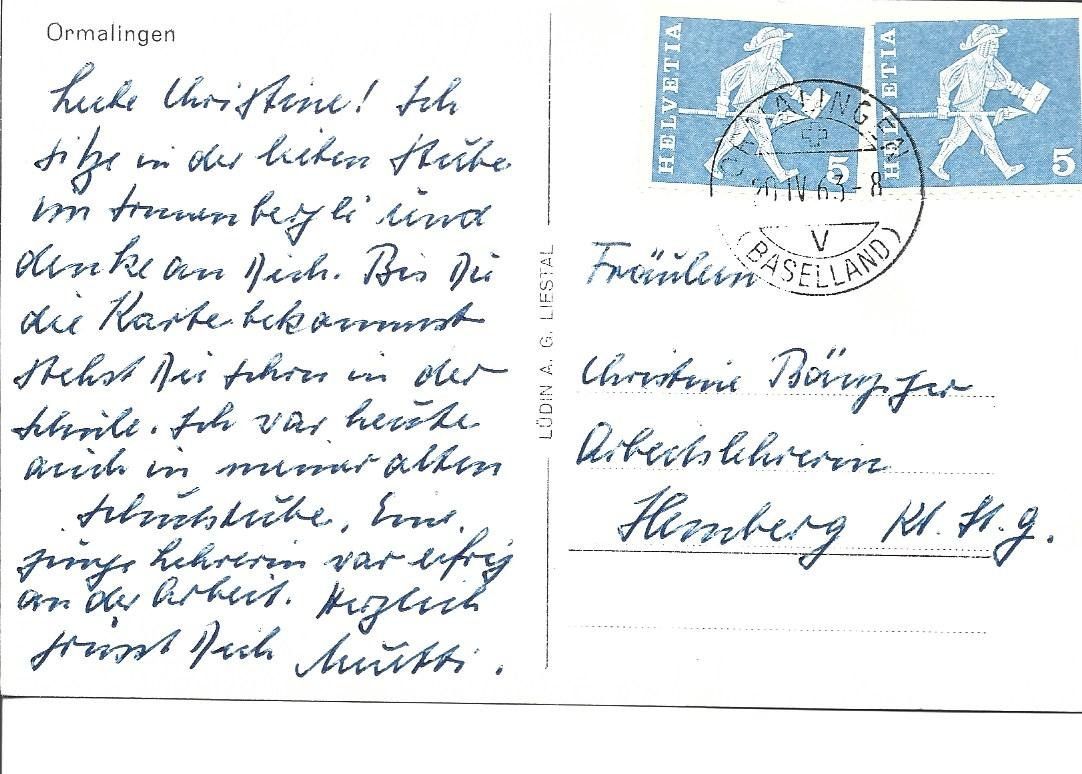 Ormalingen
Liebe Christine! Ich
sitze in der lieben Stube
im Sonnenbergli und
denke an Dich. Bis Du
die Karte bekommst
stehst Du schon in der
Schule. Ich war heute
auch in meiner alten
Schulstube. Eine
junge Lehrerin war eifrig
an der Arbeit. Herzlich
grüsst Dich Mutti.
LÜDIN A. G. LIESTAL
HELVETIA 5
HELVETIA 5
ORMALINGEN
20.IV.63-8
V
(BASELLAND)
Fräulein
Christine Bänziger
Arbeitslehrerin
Hemberg Kt. St. G.